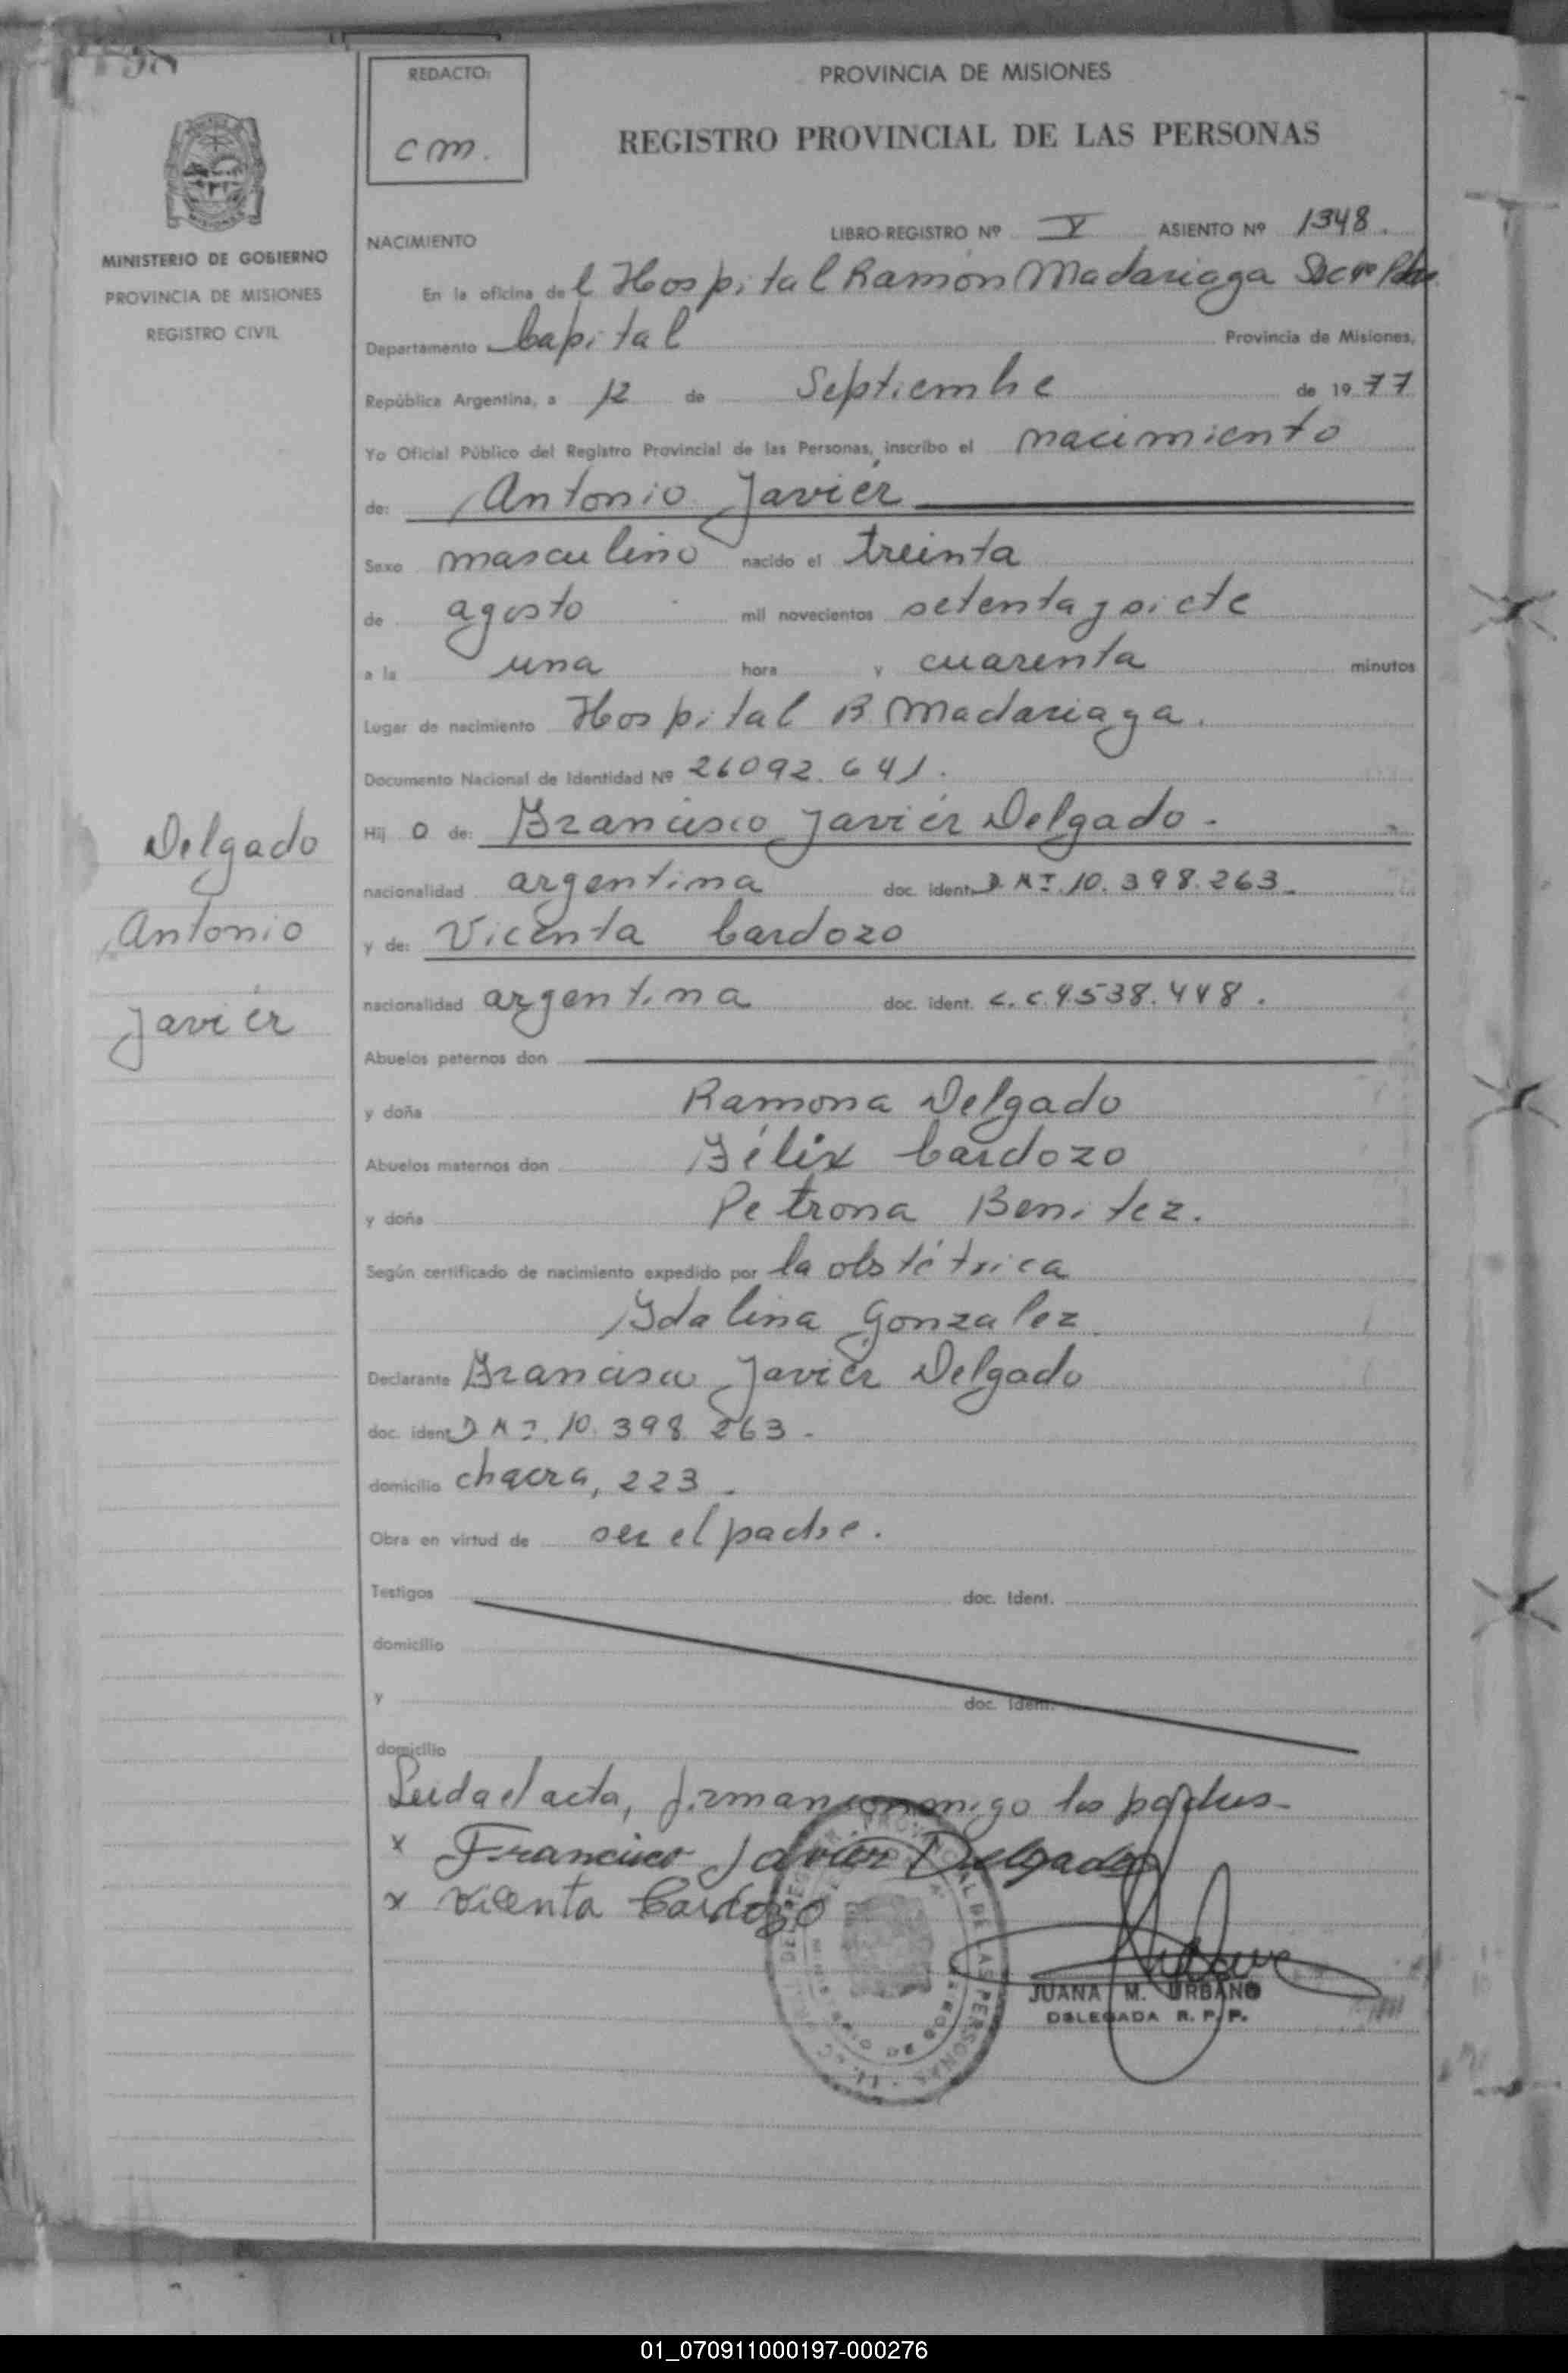 REDACTO:
cm.
PROVINCIA DE MISIONES
REGISTRO PROVINCIAL DE LAS PERSONAS
MINISTERIO DE GOBIERNO
PROVINCIA DE MISIONES
REGISTRO CIVIL
NACIMIENTO LIBRO-REGISTRO Nº V ASIENTO Nº 1348.
En la oficina del Hospital Ramón Madariaga
Departamento Capital Provincia de Misiones,
República Argentina, a 12 de Septiembre de 1977
Yo Oficial Público del Registro Provincial de las Personas, inscribo el nacimiento
de: Antonio Javiér
Sexo masculino nacido el treinta
de agosto mil novecientos setenta y siete
a la una hora y cuarenta minutos
Lugar de nacimiento Hospital R. Madariaga.
Documento Nacional de Identidad Nº 26092.641.
Hij o de: Francisco Javiér Delgado.
nacionalidad argentina doc. ident. DNI. 10.398.263.
y de: Vicenta Cardozo
nacionalidad argentina doc. ident. c.c. 4.538.448.
Abuelos paternos don
y doña Ramona Delgado
Abuelos maternos don Félix Cardozo
y doña Petrona Benitez.
Según certificado de nacimiento expedido por la obstétrica
Ydalina Gonzalez
Declarante Francisco Javiér Delgado
doc. ident DNI. 10.398.263.
domicilio chacra, 223.
Obra en virtud de ser el padre.
Testigos doc. Ident.
domicilio
y doc. Ident.
domicilio
Leida el acta, firman conmigo los padres.
x Francisco Javier Delgado
x Vicenta Cardozo
JUANA M. URBANO
DELEGADA R. P. P.
Delgado
Antonio
Javiér
01_070911000197-000276